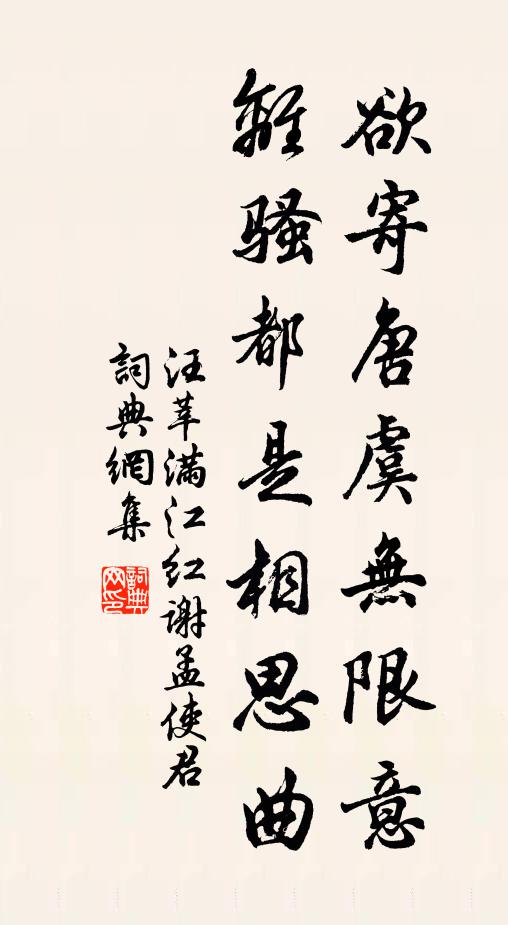 欲寄唐虞無限意
離騷都是相思曲
汪莘滿江红謝孟使君
詞典網集
詞典網印